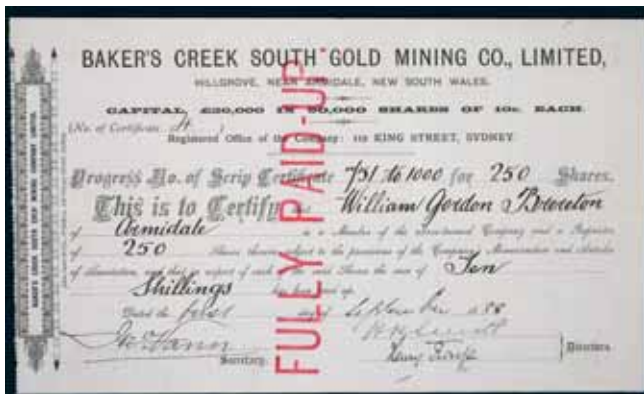 BAKER'S CREEK SOUTH GOLD MINING CO., LIMITED,
HILLGROVE, NEAR ARMIDALE, NEW SOUTH WALES.
CAPITAL £30,000 IN 60,000 SHARES OF 10s. EACH.
(No. of Certificate 4)
Registered Office of the Company: 112 KING STREET, SYDNEY
Progress No. of Scrip Certificate 751 to 1000 for 250 Shares.
This is to Certify that William Gordon Brereton
of Armidale is a Member of the above-named Company and a Proprietor
of 250 Shares therein subject to the provisions of the Company's Memorandum and Articles
of Association, and that in respect of each of the said Shares the sum of Ten
Shillings has been paid up.
Dated the first day of September 188
Secretary.
Directors.
FULLY PAID-UP
BAKER'S CREEK SOUTH GOLD MINING COMPANY LIMITED.